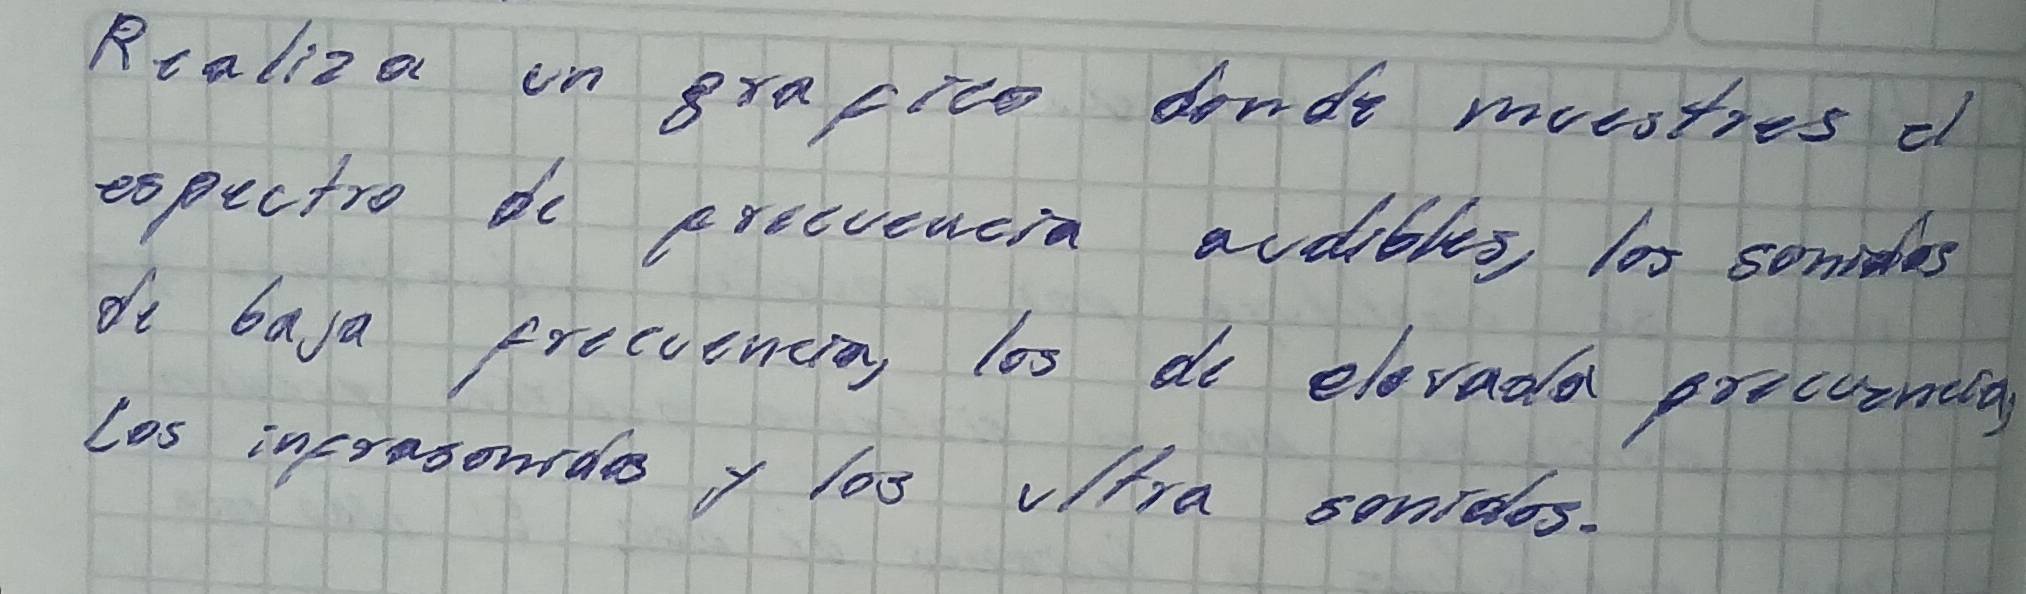 Realiza un grafico donde muestres el
espectro de frecuencia audibles, los sonidos
de baja frecuencia, los de elevada frecuencia,
Los infrasonidos y los ultra sonidos.